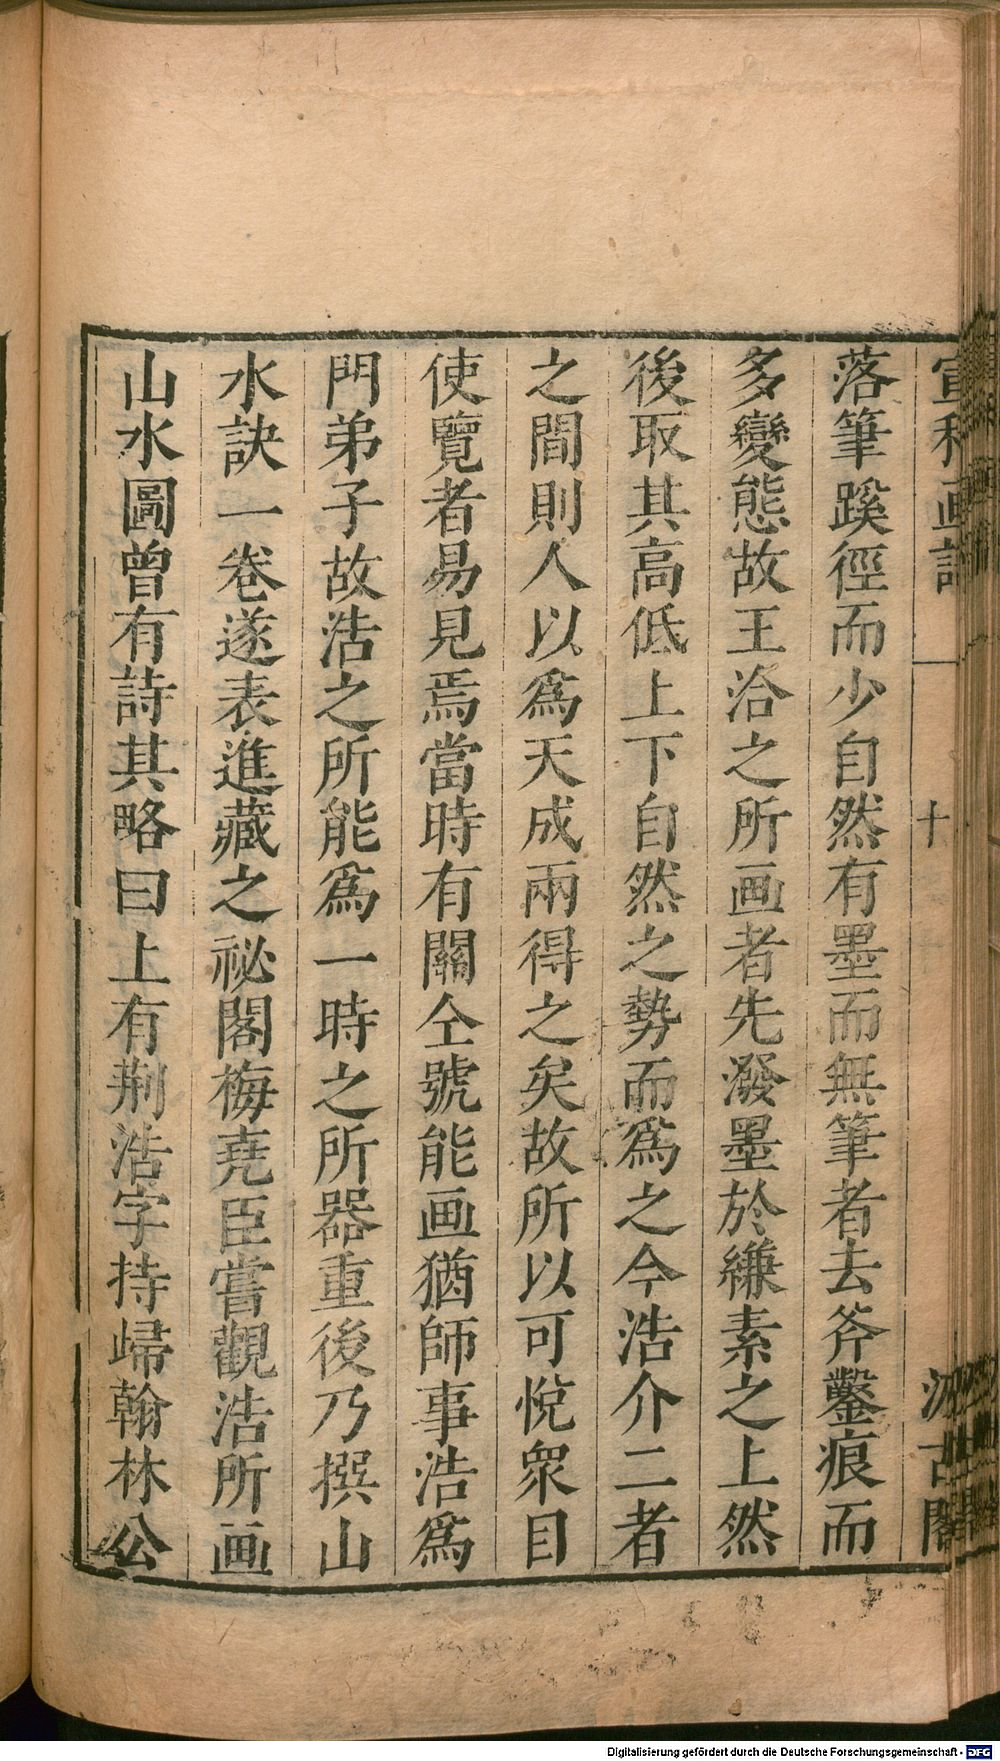 宣和画譜
十
汲古閣
落筆蹊徑而少自然有墨而無筆者去斧鑿痕而
多變態故王洽之所画者先潑墨於縑素之上然
後取其高低上下自然之勢而爲之今浩介二者
之間則人以爲天成兩得之矣故所以可悅衆目
使覽者易見焉當時有關仝號能画猶師事浩爲
門弟子故浩之所能爲一時之所器重後乃撰山
水訣一卷遂表進藏之祕閣梅堯臣嘗觀浩所画
山水圖曾有詩其略曰上有荆浩字持歸翰林公
Digitalisierung gefördert durch die Deutsche Forschungsgemeinschaft - DFG